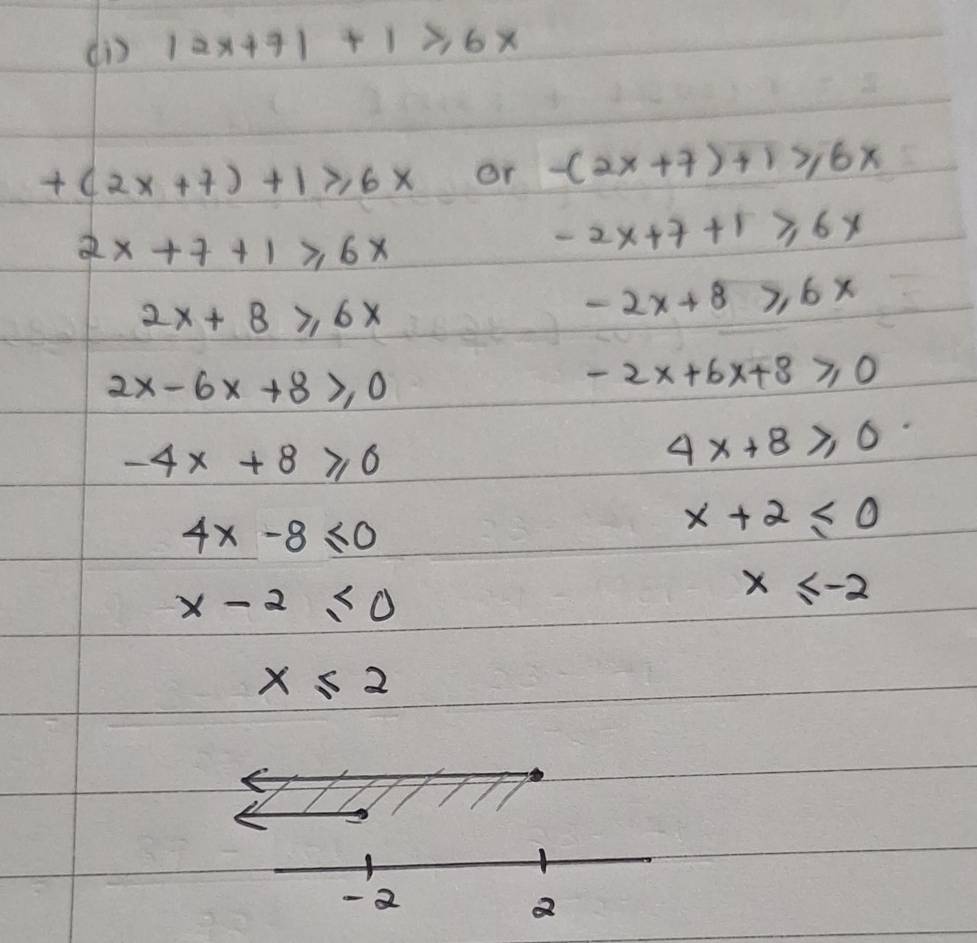 (i) |2x+7| + 1 ⩾ 6x
+(2x+7) +1 ⩾ 6x or -(2x+7)+1 ⩾ 6x
2x + 7 + 1 ⩾ 6x -2x+7+1 ⩾ 6x
2x + 8 ⩾ 6x -2x+8 ⩾ 6x
2x-6x+8 ⩾ 0 -2x+6x+8 ⩾ 0
-4x +8 ⩾ 0 4x+8 ⩾ 0
4x -8 ⩽ 0 x+2 ⩽ 0
x-2 ⩽ 0 x ⩽ -2
x ⩽ 2
-2 2